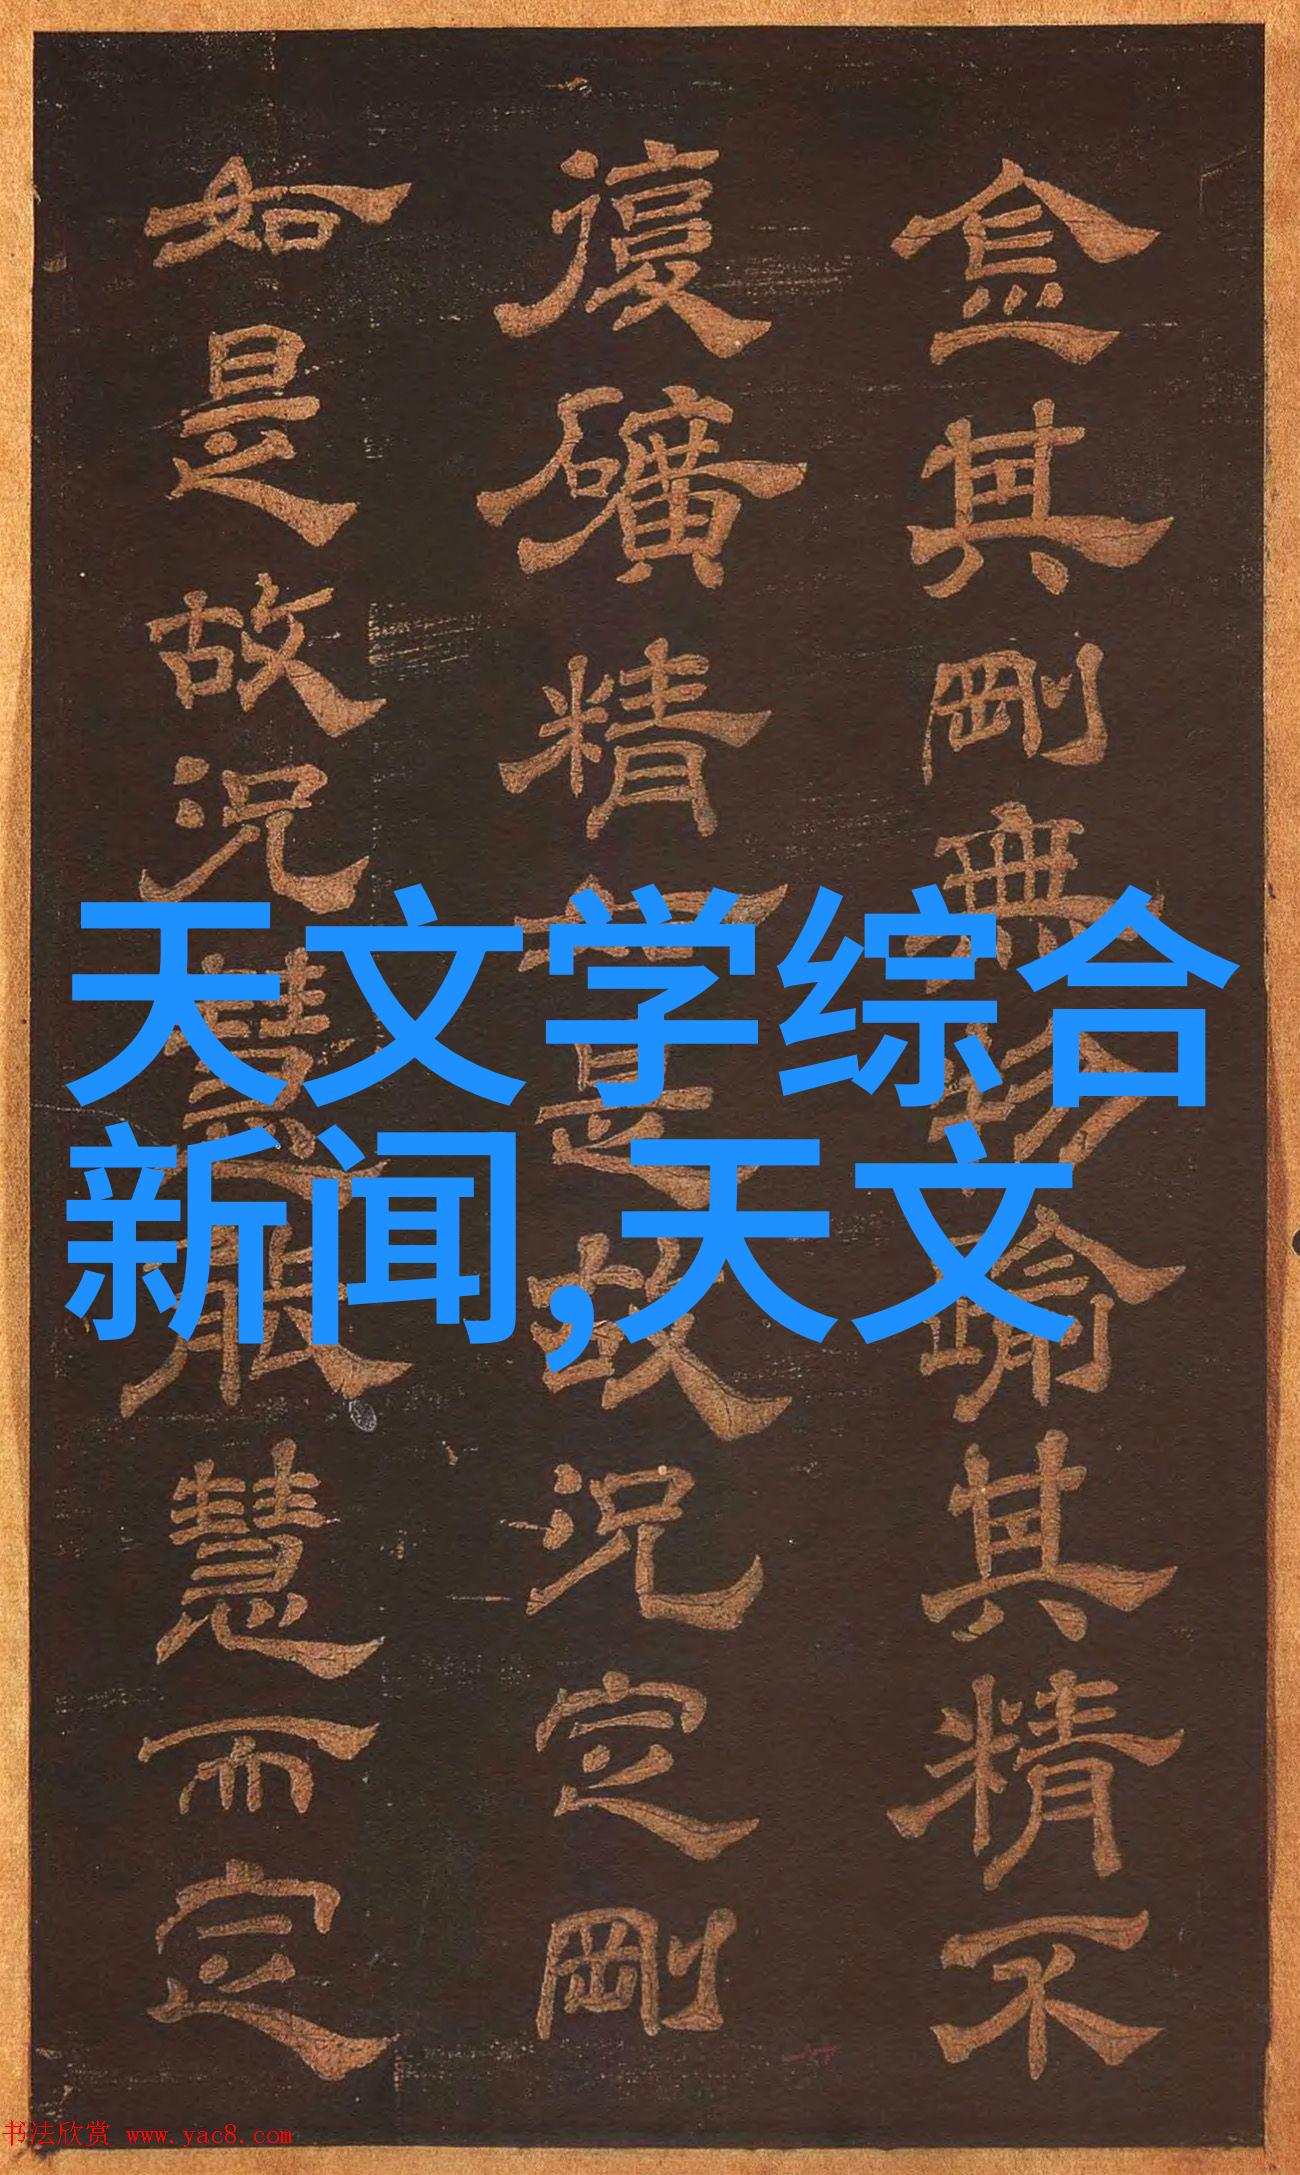 金其剛無物踰其精不
復礦精如是故況定剛
如是故況慧慧而定
天文学综合
新闻,天文
书法欣赏 www.yac8.com